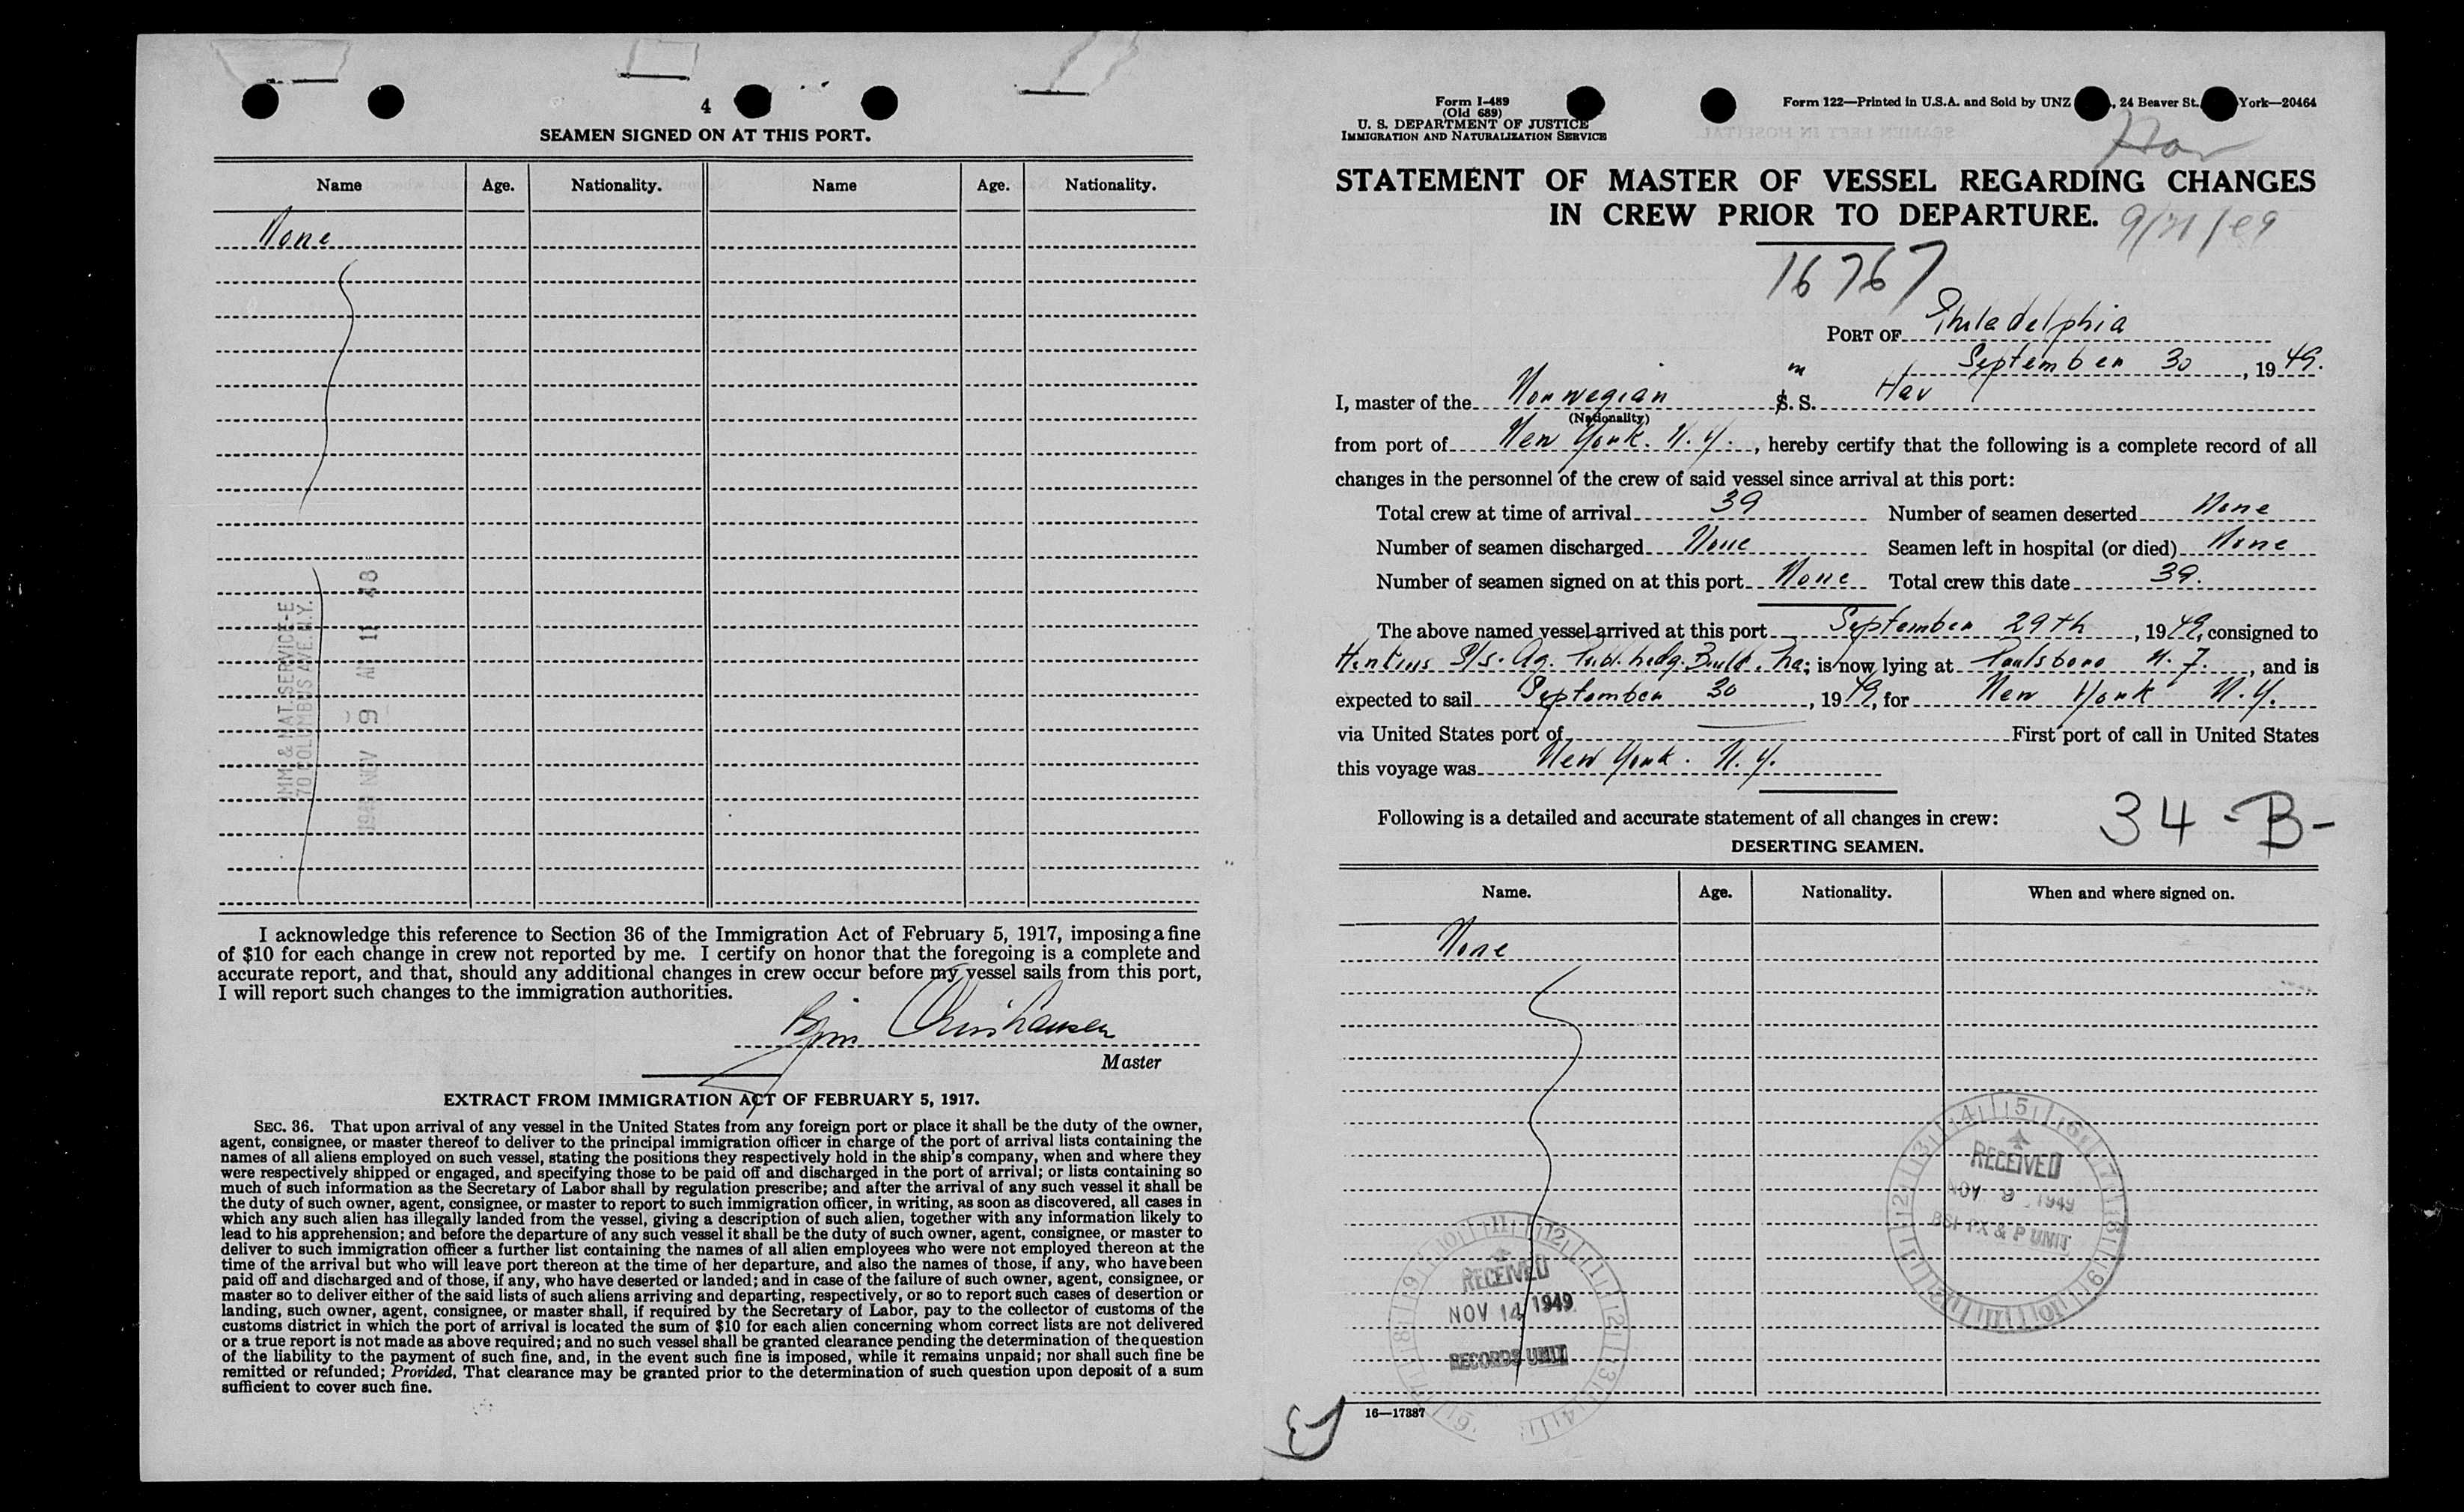 4
SEAMEN SIGNED ON AT THIS PORT.
Name Age. Nationality. Name Age. Nationality.
None
IMM & NAT SERVICE-E
70 COLUMBUS AVE. N.Y.
1949 NOV 9 AM 11 48
I acknowledge this reference to Section 36 of the Immigration Act of February 5, 1917, imposing a fine
of $10 for each change in crew not reported by me. I certify on honor that the foregoing is a complete and
accurate report, and that, should any additional changes in crew occur before my vessel sails from this port,
I will report such changes to the immigration authorities.
Christiansen
Master
EXTRACT FROM IMMIGRATION ACT OF FEBRUARY 5, 1917.
SEC. 36. That upon arrival of any vessel in the United States from any foreign port or place it shall be the duty of the owner,
agent, consignee, or master thereof to deliver to the principal immigration officer in charge of the port of arrival lists containing the
names of all aliens employed on such vessel, stating the positions they respectively hold in the ship's company, when and where they
were respectively shipped or engaged, and specifying those to be paid off and discharged in the port of arrival; or lists containing so
much of such information as the Secretary of Labor shall by regulation prescribe; and after the arrival of any such vessel it shall be
the duty of such owner, agent, consignee, or master to report to such immigration officer, in writing, as soon as discovered, all cases in
which any such alien has illegally landed from the vessel, giving a description of such alien, together with any information likely to
lead to his apprehension; and before the departure of any such vessel it shall be the duty of such owner, agent, consignee, or master to
deliver to such immigration officer a further list containing the names of all alien employees who were not employed thereon at the
time of the arrival but who will leave port thereon at the time of her departure, and also the names of those, if any, who have been
paid off and discharged and of those, if any, who have deserted or landed; and in case of the failure of such owner, agent, consignee, or
master so to deliver either of the said lists of such aliens arriving and departing, respectively, or so to report such cases of desertion or
landing, such owner, agent, consignee, or master shall, if required by the Secretary of Labor, pay to the collector of customs of the
customs district in which the port of arrival is located the sum of $10 for each alien concerning whom correct lists are not delivered
or a true report is not made as above required; and no such vessel shall be granted clearance pending the determination of the question
of the liability to the payment of such fine, and, in the event such fine is imposed, while it remains unpaid; nor shall such fine be
remitted or refunded; Provided, That clearance may be granted prior to the determination of such question upon deposit of a sum
sufficient to cover such fine.
Form I-489
(Old 689)
U. S. DEPARTMENT OF JUSTICE
IMMIGRATION AND NATURALIZATION SERVICE
Form 122—Printed in U.S.A. and Sold by UNZ , 24 Beaver St. York—20464
Hav
STATEMENT OF MASTER OF VESSEL REGARDING CHANGES
IN CREW PRIOR TO DEPARTURE.
16767
PORT OF Philadelphia
September 30, 1949.
I, master of the Norwegian m S. S. Hav
(Nationality)
from port of New York. N.Y., hereby certify that the following is a complete record of all
changes in the personnel of the crew of said vessel since arrival at this port:
Total crew at time of arrival 39 Number of seamen deserted None
Number of seamen discharged None Seamen left in hospital (or died) None
Number of seamen signed on at this port None Total crew this date 39.
The above named vessel arrived at this port September 29th, 1949, consigned to
; is now lying at Paulsboro N.J., and is
expected to sail September 30, 1949, for New York N.Y.
via United States port of — First port of call in United States
this voyage was New York. N.Y.
Following is a detailed and accurate statement of all changes in crew:
34-B-
DESERTING SEAMEN.
Name. Age. Nationality. When and where signed on.
None
RECEIVED
NOV 9 1949
RECEIVED
NOV 14 1949
RECORDS UNIT
16—17387